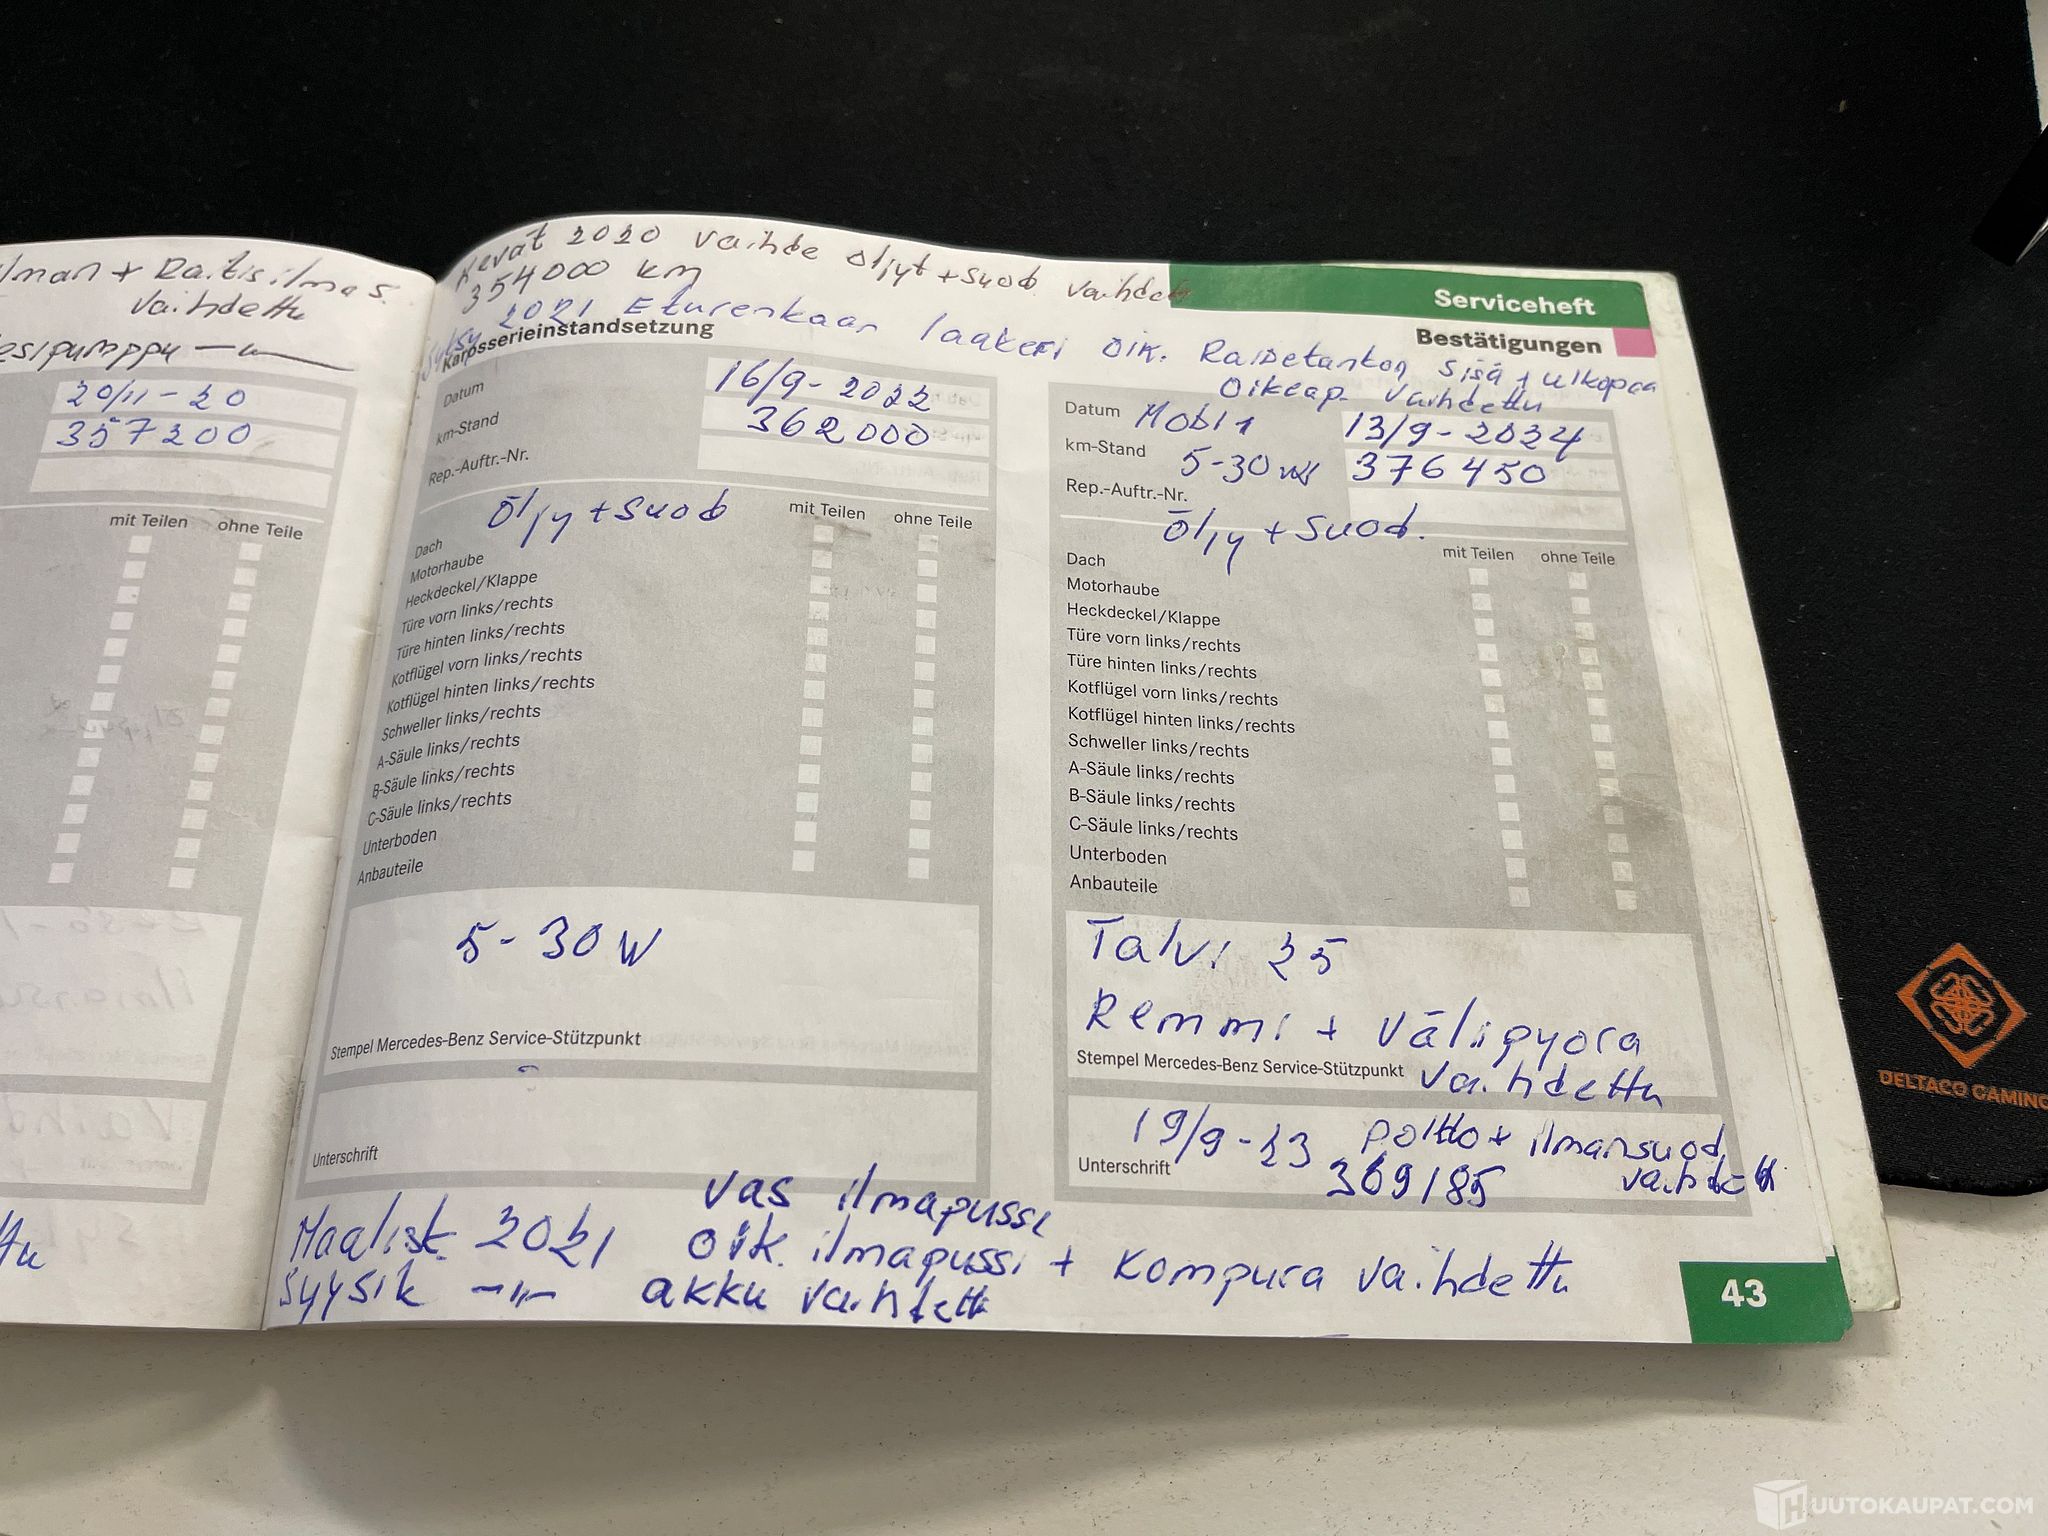 ilman + Raitisilmas.
vaihdettu
vesipumppu —"—
20/11-20
357200
mit Teilen
ohne Teile
Kevät 2020 vaihde öljyt + suod. vaihdet
354000 km
Syksy 2021 Eturenkaan laakeri oik. Raidetankon sisä + ulkopää
Oikeap. vaihdettu
Serviceheft
Bestätigungen
Karosserieinstandsetzung
Datum 16/9-2022
km-Stand 362000
Rep.-Auftr.-Nr.
Öljy + suod
mit Teilen
ohne Teile
Dach
Motorhaube
Heckdeckel/Klappe
Türe vorn links/rechts
Türe hinten links/rechts
Kotflügel vorn links/rechts
Kotflügel hinten links/rechts
Schweller links/rechts
A-Säule links/rechts
B-Säule links/rechts
C-Säule links/rechts
Unterboden
Anbauteile
5-30W
Stempel Mercedes-Benz Service-Stützpunkt
Unterschrift
Datum Mobil 1 13/9-2024
km-Stand 5-30W 376450
Rep.-Auftr.-Nr.
Öljy + suod.
mit Teilen
ohne Teile
Dach
Motorhaube
Heckdeckel/Klappe
Türe vorn links/rechts
Türe hinten links/rechts
Kotflügel vorn links/rechts
Kotflügel hinten links/rechts
Schweller links/rechts
A-Säule links/rechts
B-Säule links/rechts
C-Säule links/rechts
Unterboden
Anbauteile
Talvi 25
Remmi + välipyörä
Stempel Mercedes-Benz Service-Stützpunkt vaihdettu
19/9-23 poltto + ilmansuod.
Unterschrift 369185 vaihdett
vas ilmapussi
Maalisk. 2021 oik. ilmapussi + kompura vaihdettu
Syysk —"— akku vaihdett
43
DELTACO GAMING
HUUTOKAUPAT.COM